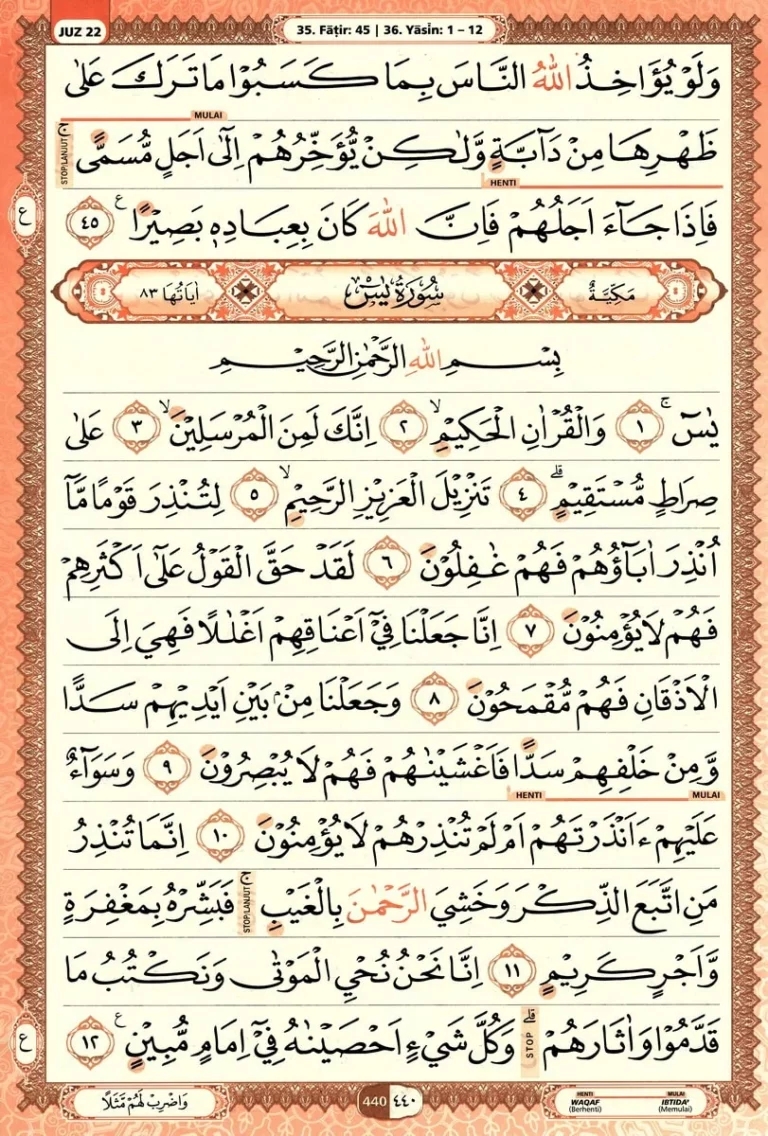 JUZ 22
35. Fāṭir: 45 | 36. Yāsīn: 1 – 12
وَلَوْ يُؤَاخِذُ اللّٰهُ النَّاسَ بِمَا كَسَبُوْا مَا تَرَكَ عَلٰى
MULAI
ظَهْرِهَا مِنْ دَاۤبَّةٍ وَّلٰكِنْ يُّؤَخِّرُهُمْ اِلٰٓى اَجَلٍ مُّسَمًّىۚ
STOP/LANJUT
HENTI
فَاِذَا جَاۤءَ اَجَلُهُمْ فَاِنَّ اللّٰهَ كَانَ بِعِبَادِهٖ بَصِيْرًا ࣖ ٤٥
ع
مَكِّيَّةٌ
سُوْرَةُ يٰسۤ
اٰيَاتُهَا ٨٣
بِسْمِ اللّٰهِ الرَّحْمٰنِ الرَّحِيْمِ
يٰسۤ ۚ ١ وَالْقُرْاٰنِ الْحَكِيْمِۙ ٢ اِنَّكَ لَمِنَ الْمُرْسَلِيْنَۙ ٣ عَلٰى
صِرَاطٍ مُّسْتَقِيْمٍۗ ٤ تَنْزِيْلَ الْعَزِيْزِ الرَّحِيْمِۙ ٥ لِتُنْذِرَ قَوْمًا مَّآ
اُنْذِرَ اٰبَاۤؤُهُمْ فَهُمْ غٰفِلُوْنَ ٦ لَقَدْ حَقَّ الْقَوْلُ عَلٰٓى اَكْثَرِهِمْ
فَهُمْ لَا يُؤْمِنُوْنَ ٧ اِنَّا جَعَلْنَا فِيْٓ اَعْنَاقِهِمْ اَغْلٰلًا فَهِيَ اِلَى
الْاَذْقَانِ فَهُمْ مُّقْمَحُوْنَ ٨ وَجَعَلْنَا مِنْۢ بَيْنِ اَيْدِيْهِمْ سَدًّا
وَّمِنْ خَلْفِهِمْ سَدًّا فَاَغْشَيْنٰهُمْ فَهُمْ لَا يُبْصِرُوْنَ ٩ وَسَوَاۤءٌ
HENTI
MULAI
عَلَيْهِمْ ءَاَنْذَرْتَهُمْ اَمْ لَمْ تُنْذِرْهُمْ لَا يُؤْمِنُوْنَ ١٠ اِنَّمَا تُنْذِرُ
مَنِ اتَّبَعَ الذِّكْرَ وَخَشِيَ الرَّحْمٰنَ بِالْغَيْبِۚ فَبَشِّرْهُ بِمَغْفِرَةٍ
STOP/LANJUT
وَّاَجْرٍ كَرِيْمٍ ١١ اِنَّا نَحْنُ نُحْيِ الْمَوْتٰى وَنَكْتُبُ مَا
قَدَّمُوْا وَاٰثَارَهُمْۗ وَكُلَّ شَيْءٍ اَحْصَيْنٰهُ فِيْٓ اِمَامٍ مُّبِيْنٍ ࣖ ١٢
STOP
ع
وَاضْرِبْ لَهُمْ مَّثَلًا
440 ٤٤٠
HENTI
WAQAF
(Berhenti)
MULAI
IBTIDA'
(Memulai)